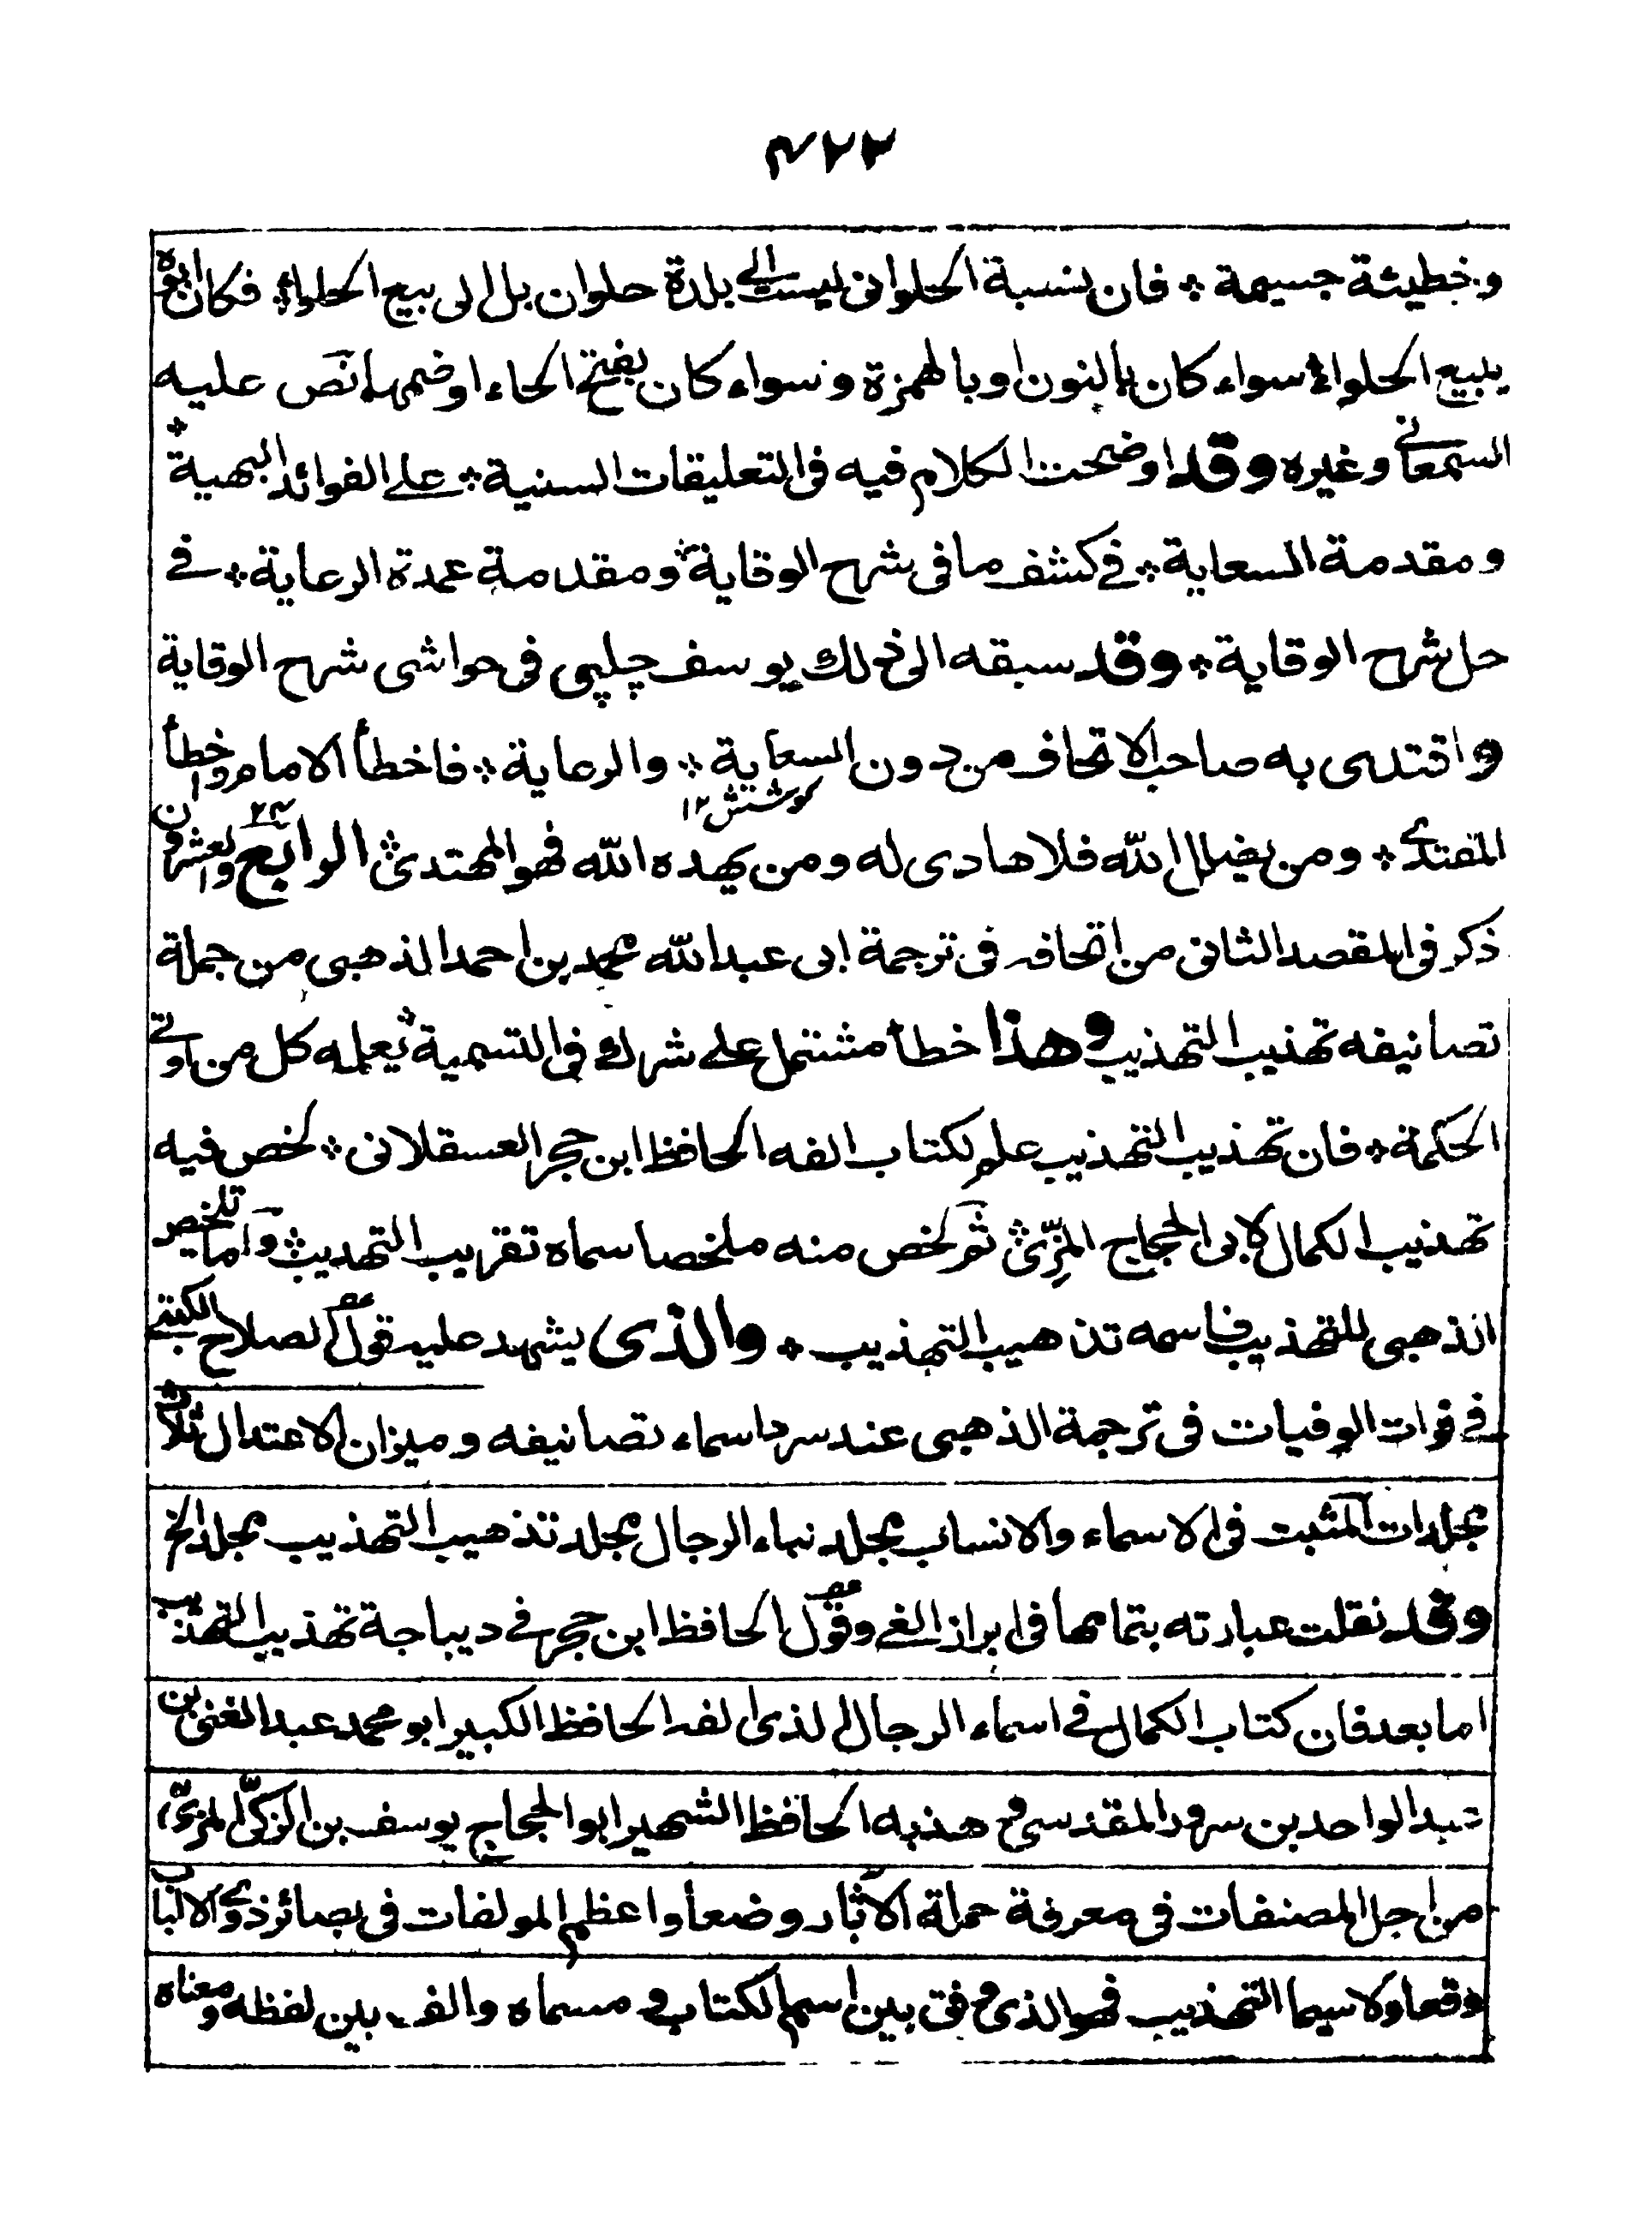 ٤٢٢
وخطيئة جسيمة ؞ فان نسبة الحلوانى ليست الى بلدة حلوان بل الى بيع الحلواء ؞ فكان ابوه
يبيع الحلواء سواء كان بالنون او بالهمزة وسواء كان بفتح الحاء او ضمها نص عليه
السمعانى وغيره وقد اوضحت الكلام فيه فى التعليقات السنية ؞ على الفوائد البهية ؞
ومقدمة السعاية ؞ فى كشف ما فى شرح الوقاية ؞ ومقدمة عمدة الرعاية ؞ فى
حل شرح الوقاية ؞ وقد سبقه الى ذلك يوسف چلپى فى حواشى شرح الوقاية
واقتدى به صاحب الاتحاف من دون السعاية ؞ والرعاية ؞ فاخطأ الامام واخطأ
كوشش ١٢
المقتدى ؞ ومن يضلل الله فلا هادى له ومن يهده الله فهو المهتدى ؞ الرابع والعشرون
٢٤
ذكر فى المقصد الثانى من اتحافه فى ترجمة ابى عبد الله محمد بن احمد الذهبى من جملة
تصانيفه تهذيب التهذيب وهذا خطأ مشتمل على شرك فى التسمية ؞ يعلمه كل من اوتى
الحكمة ؞ فان تهذيب التهذيب علم لكتاب الفه الحافظ ابن حجر العسقلانى ؞ لخص فيه
تهذيب الكمال لابى الحجاج المزّى ؞ ثم لخص منه ملخصا سماه تقريب التهذيب ؞ واما تلخيص
الذهبى للتهذيب فاسمه تذهيب التهذيب ؞ والذى يشهد عليه قول الصلاح الكتبى
فى فوات الوفيات فى ترجمة الذهبى عند سرد اسماء تصانيفه وميزان الاعتدال ثلاث
مجلدات المشتبت فى الاسماء والانساب مجلد نباء الرجال مجلد تذهيب التهذيب مجلد الخ
وقد نقلت عبارته بتمامها فى ابراز الغى وقول الحافظ ابن حجر فى ديباجة تهذيب التهذيب
اما بعد فان كتاب الكمال فى اسماء الرجال الذى الفه الحافظ الكبير ابو محمد عبد الغنى بن
عبد الواحد بن سرور المقدسى وهذبه الحافظ الشهير ابو الحجاج يوسف بن الزكىّ المزىّ
من اجل المصنفات فى معرفة حملة الآثار وضعا واعظم المولفات فى بصائر ذوى الالباب
وقعا ولا سيما التهذيب فهو الذى وفق بين اسم الكتاب ومسماه والف بين لفظه ومعناه